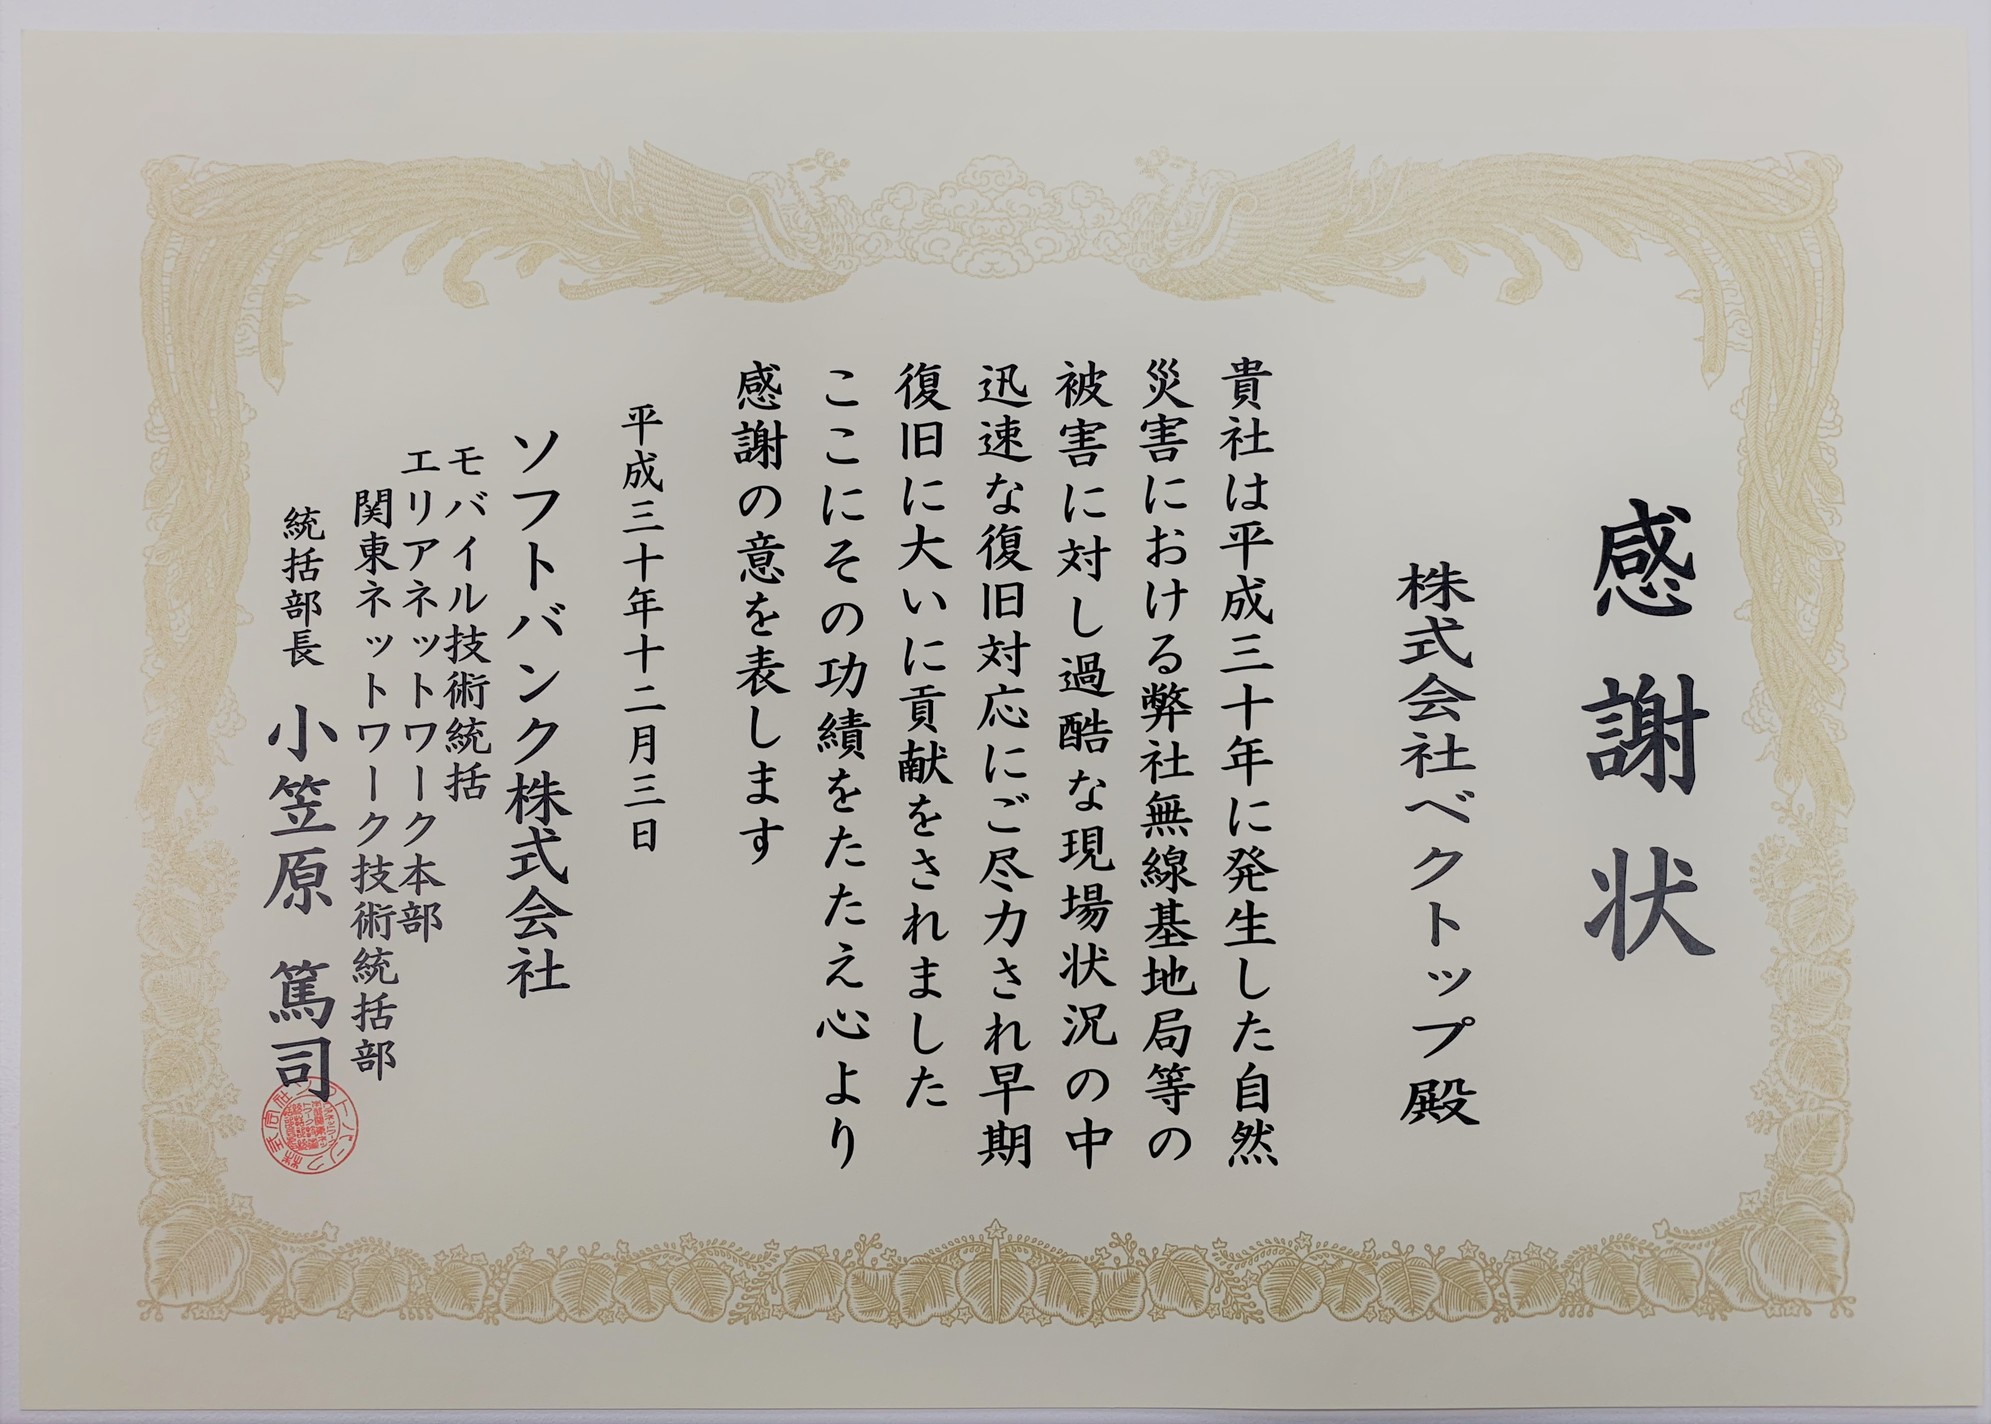 感謝状
株式会社ベクトップ殿
貴社は平成三十年に発生した自然
災害における弊社無線基地局等の
被害に対し過酷な現場状況の中
迅速な復旧対応にご尽力され早期
復旧に大いに貢献をされました
ここにその功績をたたえ心より
感謝の意を表します
平成三十年十二月三日
ソフトバンク株式会社
モバイル技術統括
エリアネットワーク本部
関東ネットワーク技術統括部
統括部長 小笠原 篤司